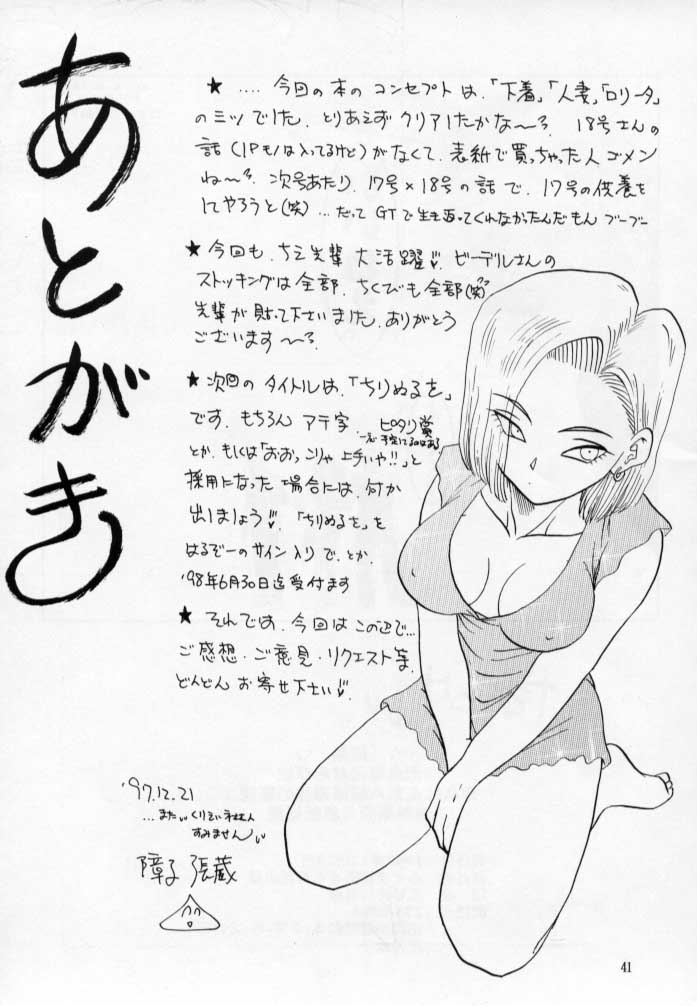 あとがき
★ ‥‥ 今回の本の コンセプト は、「下着」、「人妻」、「ロリータ」
の ミッツ でした。 とりあえず クリア したかな～？。 18号さんの
話 (1Pモノは入ってるけど) がなくて、表紙で買っちゃった人 ゴメン
ね～？。 次号あたり、17号×18号の話で、17号の供養を
してやろうと(笑) … だって GTで生き返ってくれなかったんだもん ブーブー
★ 今回も、ちえ先輩 大活躍。 ビーデルさんの
ストッキングは全部、ちくびも全部(笑)
先輩が貼って下さいました。ありがとう
ございます ～？。
★ 次回の タイトルは、「ちりぬるを」
です。もちろん アテ字。 ピタリ賞
一応 予定してるのはある
とか、もしくは「おおっ こりゃ 上手いや!!」と
採用になった 場合には、何か
出しましょう。 「ちりぬるを」を
はるぞーのサイン入りで、とか。
'98年6月30日迄受付ます
★ それでは、今回は この辺で…
ご感想・ご意見・リクエスト等、
どんどん お寄せ下さい。
'97.12.21
…また
すみません
障子 張蔵
41